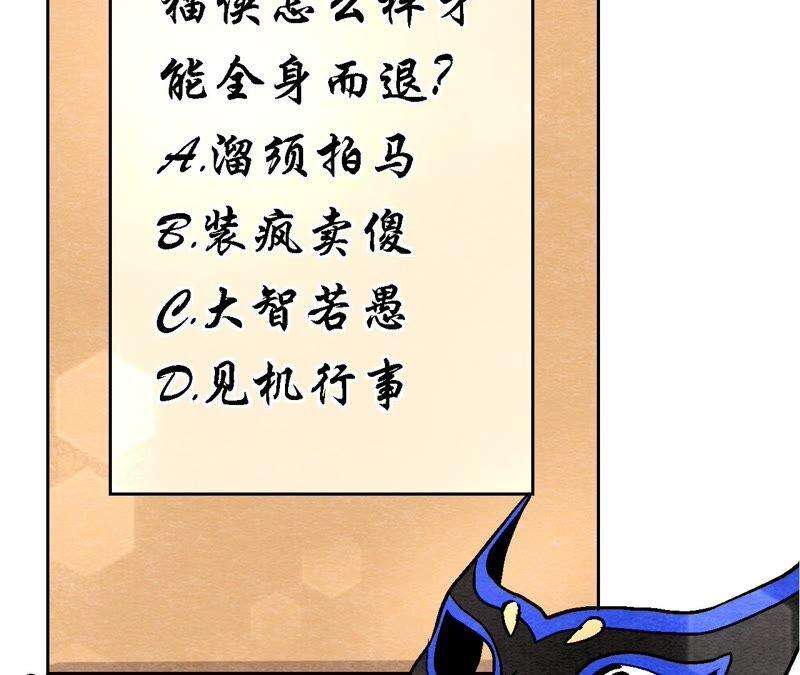 猫侠怎么样才
能全身而退?
A.溜须拍马
B.装疯卖傻
C.大智若愚
D.见机行事